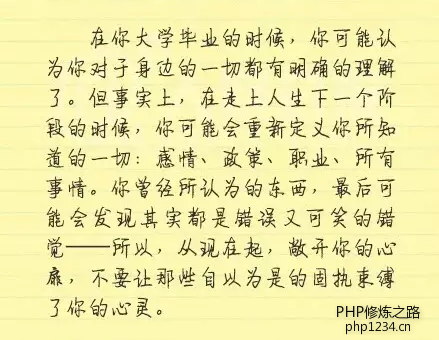 在你大学毕业的时候，你可能认
为你对于身边的一切都有明确的理解
了。但事实上，在走上人生下一个阶
段的时候，你可能会重新定义你所知
道的一切：感情、政策、职业、所有
事情。你曾经所认为的东西，最后可
能会发现其实都是错误又可笑的错
觉——所以，从现在起，敞开你的心
扉，不要让那些自以为是的固执束缚
了你的心灵。
PHP修炼之路
php1234.cn